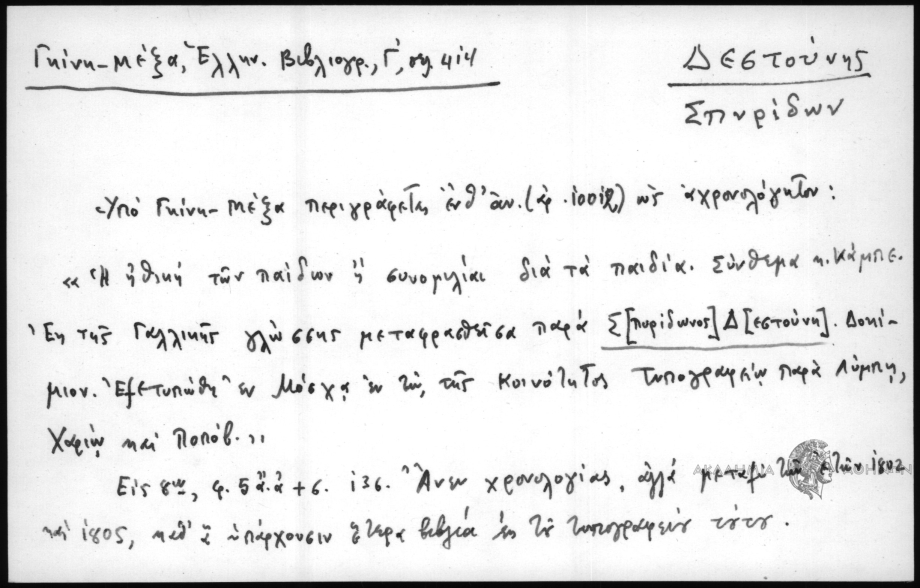 Γκίνη - Μέξα, Ἑλλην. Βιβλιογρ., Γ΄, σελ. 414
Δεστούνης
Σπυρίδων
Ὑπὸ Γκίνη - Μέξα περιγράφεται ἐνθ' ἀν. (ἀρ. ) ὡς ἀχρονολόγητον:
«Ἡ ἠθικὴ τῶν παίδων ἢ συνομιλίαι διὰ τὰ παιδία. Σύνθεμα κ. Κάμπε.
Ἐκ τῆς Γαλλικῆς γλώσσης μεταφρασθεῖσα παρὰ Σ[πυρίδωνος] Δ[εστούνη]. Δοκί-
μιον. Ἐξετυπώθη ἐν Μόσχᾳ ἐν τῷ τῆς Κοινότητος Τυπογραφείῳ παρὰ Λύμπῃ,
Χαρίῳ καὶ Ποπόβ.»
Εἰς 8ον, φ. 5 ἄ.ἀ + σ. 136. Ἄνευ χρονολογίας, ἀλλὰ μεταξὺ τῶν ἐτῶν 1802
καὶ 1805, καθ' ἃ ὑπάρχουσιν ἕτερα βιβλία ἐκ τοῦ τυπογραφείου τούτου.
ΑΚΑΔΗΜΙΑ ΑΘΗΝΩΝ